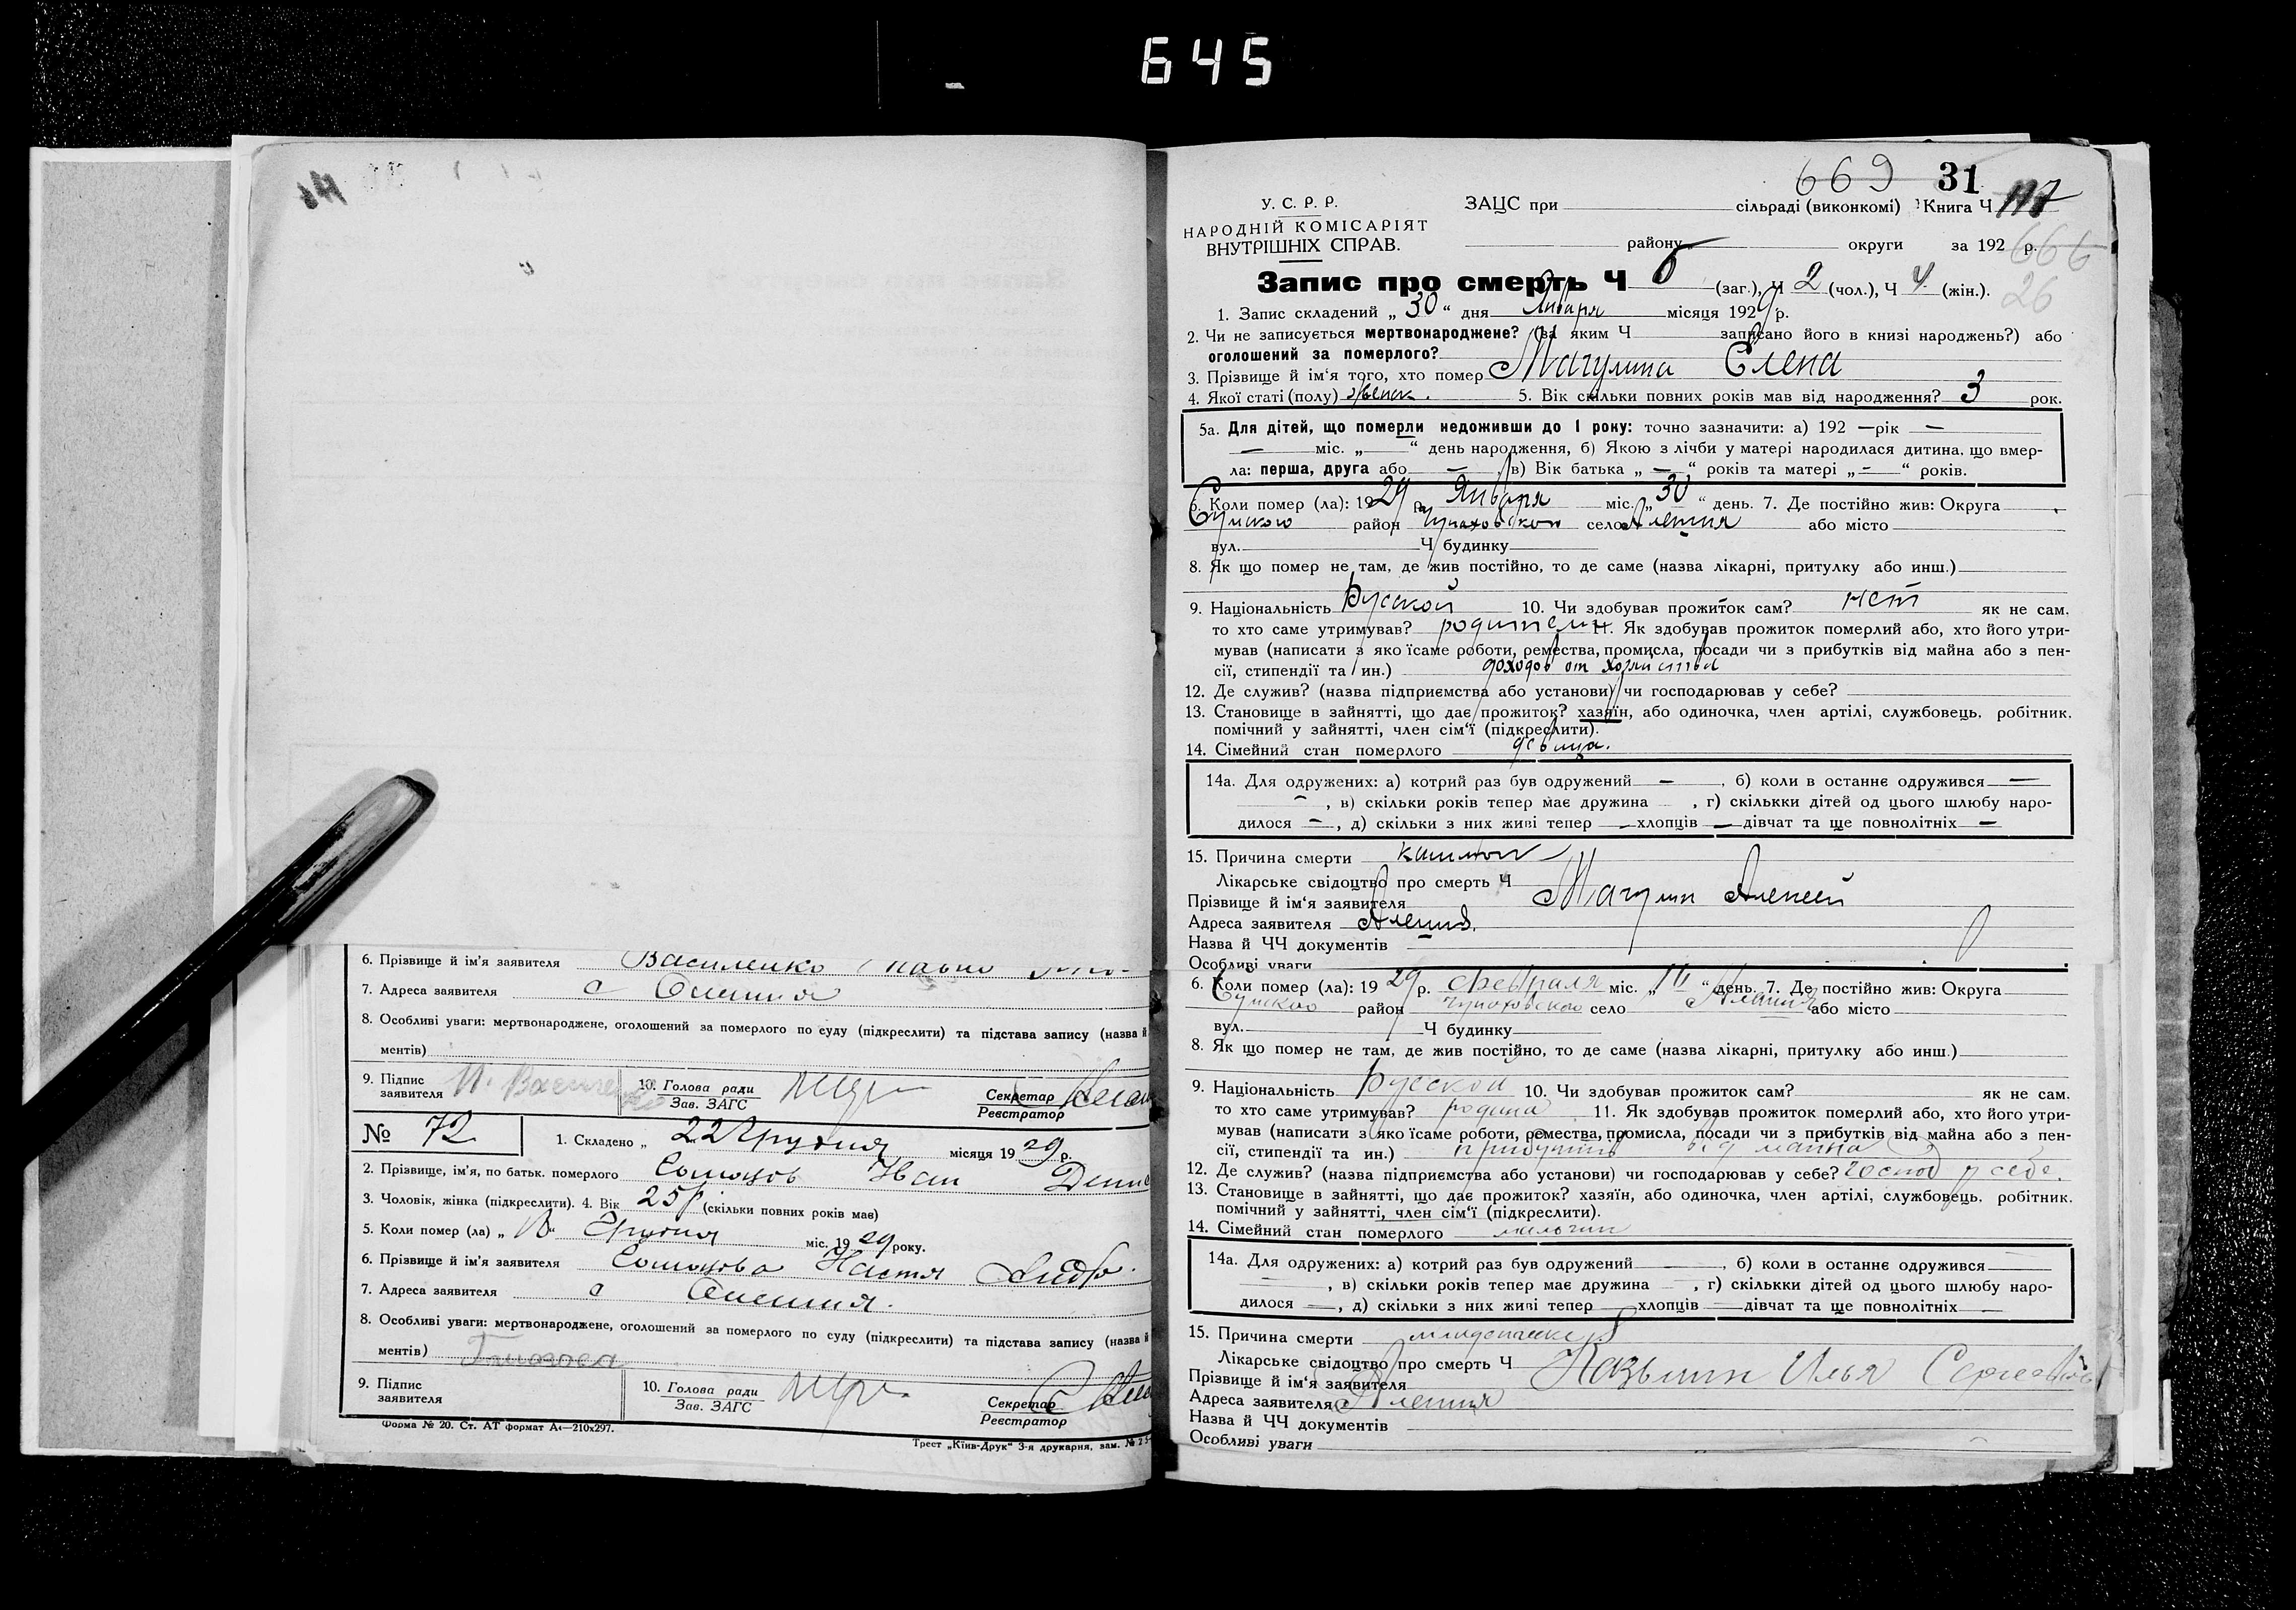 645
6. Прізвище й ім'я заявителя Василенко
7. Адреса заявителя с Олешня
8. Особливі уваги: мертвонароджене, оголошений за померлого по суду (підкреслити) та підстава запису (назва й
ментів)
9. Підпис заявителя
10. Голова ради
Зав. ЗАГС
Секретар
Реєстратор
№ 72
1. Складено „ 22 Грудня місяця 1929 р.
2. Прізвище, ім'я, по батьк. померлого
3. Чоловік, жінка (підкреслити). 4. Вік 25 р (скільки повних років має)
5. Коли помер (ла) „ Грудня міс. 1929 року.
6. Прізвище й ім'я заявителя Настя
7. Адреса заявителя с Олешня.
8. Особливі уваги: мертвонароджене, оголошений за померлого по суду (підкреслити) та підстава запису (назва й
ментів)
9. Підпис заявителя
10. Голова ради
Зав. ЗАГС
Секретар
Реєстратор
Форма № 20. Ст. АТ формат А4—210х297.
Трест „Київ-Друк" 3-я друкарня, зам. №
669 31
У. С. Р. Р.
НАРОДНІЙ КОМІСАРІЯТ
ВНУТРІШНІХ СПРАВ.
ЗАЦС при сільраді (виконкомі) Книга Ч
району округи за 192 р. 666
26
Запис про смерть Ч 6 (заг.), Ч 2 (чол.), Ч 4 (жін.).
1. Запис складений „ 30 " дня Января місяця 1929 р.
2. Чи не записується мертвонароджене? (за яким Ч записано його в книзі народжень?) або
оголошений за померлого?
3. Прізвище й ім'я того, хто помер Мачулина Елена
4. Якої статі (полу) женск. 5. Вік скільки повних років мав від народження? 3 рок.
5а. Для дітей, що померли недоживши до 1 року: точно зазначити: а) 192 — рік —
— міс. „—" день народження, б) Якою з лічби у матері народилася дитина, що вмер-
ла: перша, друга або —, в) Вік батька „ — " років та матері „ — " років.
6. Коли помер (ла): 1929 р. Января міс. „ 30 " день. 7. Де постійно жив: Округа
Сумского район Чупаховском село Алешня або місто
вул. Ч будинку
8. Як що помер не там, де жив постійно, то де саме (назва лікарні, притулку або инш.)
9. Національність Русской 10. Чи здобував прожиток сам? нет як не сам.
то хто саме утримував? родители 11. Як здобував прожиток померлий або, хто його утри-
мував (написати з яко їсаме роботи, ремества, промисла, посади чи з прибутків від майна або з пен-
сії, стипендії та ин.) доходов от хозяйства
12. Де служив? (назва підприємства або установи) чи господарював у себе?
13. Становище в зайнятті, що дає прожиток? хазяїн, або одиночка, член артілі, службовець, робітник.
помічний у зайнятті, член сім'ї (підкреслити).
14. Сімейний стан померлого девица.
14а. Для одружених: а) котрий раз був одружений —, б) коли в останнє одружився —
—, в) скільки років тепер має дружина , г) скількки дітей од цього шлюбу наро-
дилося —, д) скільки з них живі тепер — хлопців — дівчат та ще повнолітніх —
15. Причина смерти
Лікарське свідоцтво про смерть Ч
Прізвище й ім'я заявителя Мачулин Алексей
Адреса заявителя Алешня.
Назва й ЧЧ документів
Особливі уваги
6. Коли помер (ла): 1929 р. февраля міс. „ " день. 7. Де постійно жив: Округа
Сумского район Чупаховского село Алешня або місто
вул. Ч будинку
8. Як що помер не там, де жив постійно, то де саме (назва лікарні, притулку або инш.)
9. Національність Русской 10. Чи здобував прожиток сам? як не сам.
то хто саме утримував? родина 11. Як здобував прожиток померлий або, хто його утри-
мував (написати з яко їсаме роботи, ремества, промисла, посади чи з прибутків від майна або з пен-
сії, стипендії та ин.) прибутків від майна
12. Де служив? (назва підприємства або установи) чи господарював у себе? Господ у себе.
13. Становище в зайнятті, що дає прожиток? хазяїн, або одиночка, член артілі, службовець, робітник.
помічний у зайнятті, член сім'ї (підкреслити).
14. Сімейний стан померлого
14а. Для одружених: а) котрий раз був одружений —, б) коли в останнє одружився —
—, в) скільки років тепер має дружина —, г) скількки дітей од цього шлюбу наро-
дилося —, д) скільки з них живі тепер — хлопців — дівчат та ще повнолітніх —
15. Причина смерти
Лікарське свідоцтво про смерть Ч
Прізвище й ім'я заявителя Илья Сергеевич
Адреса заявителя Алешня
Назва й ЧЧ документів
Особливі уваги